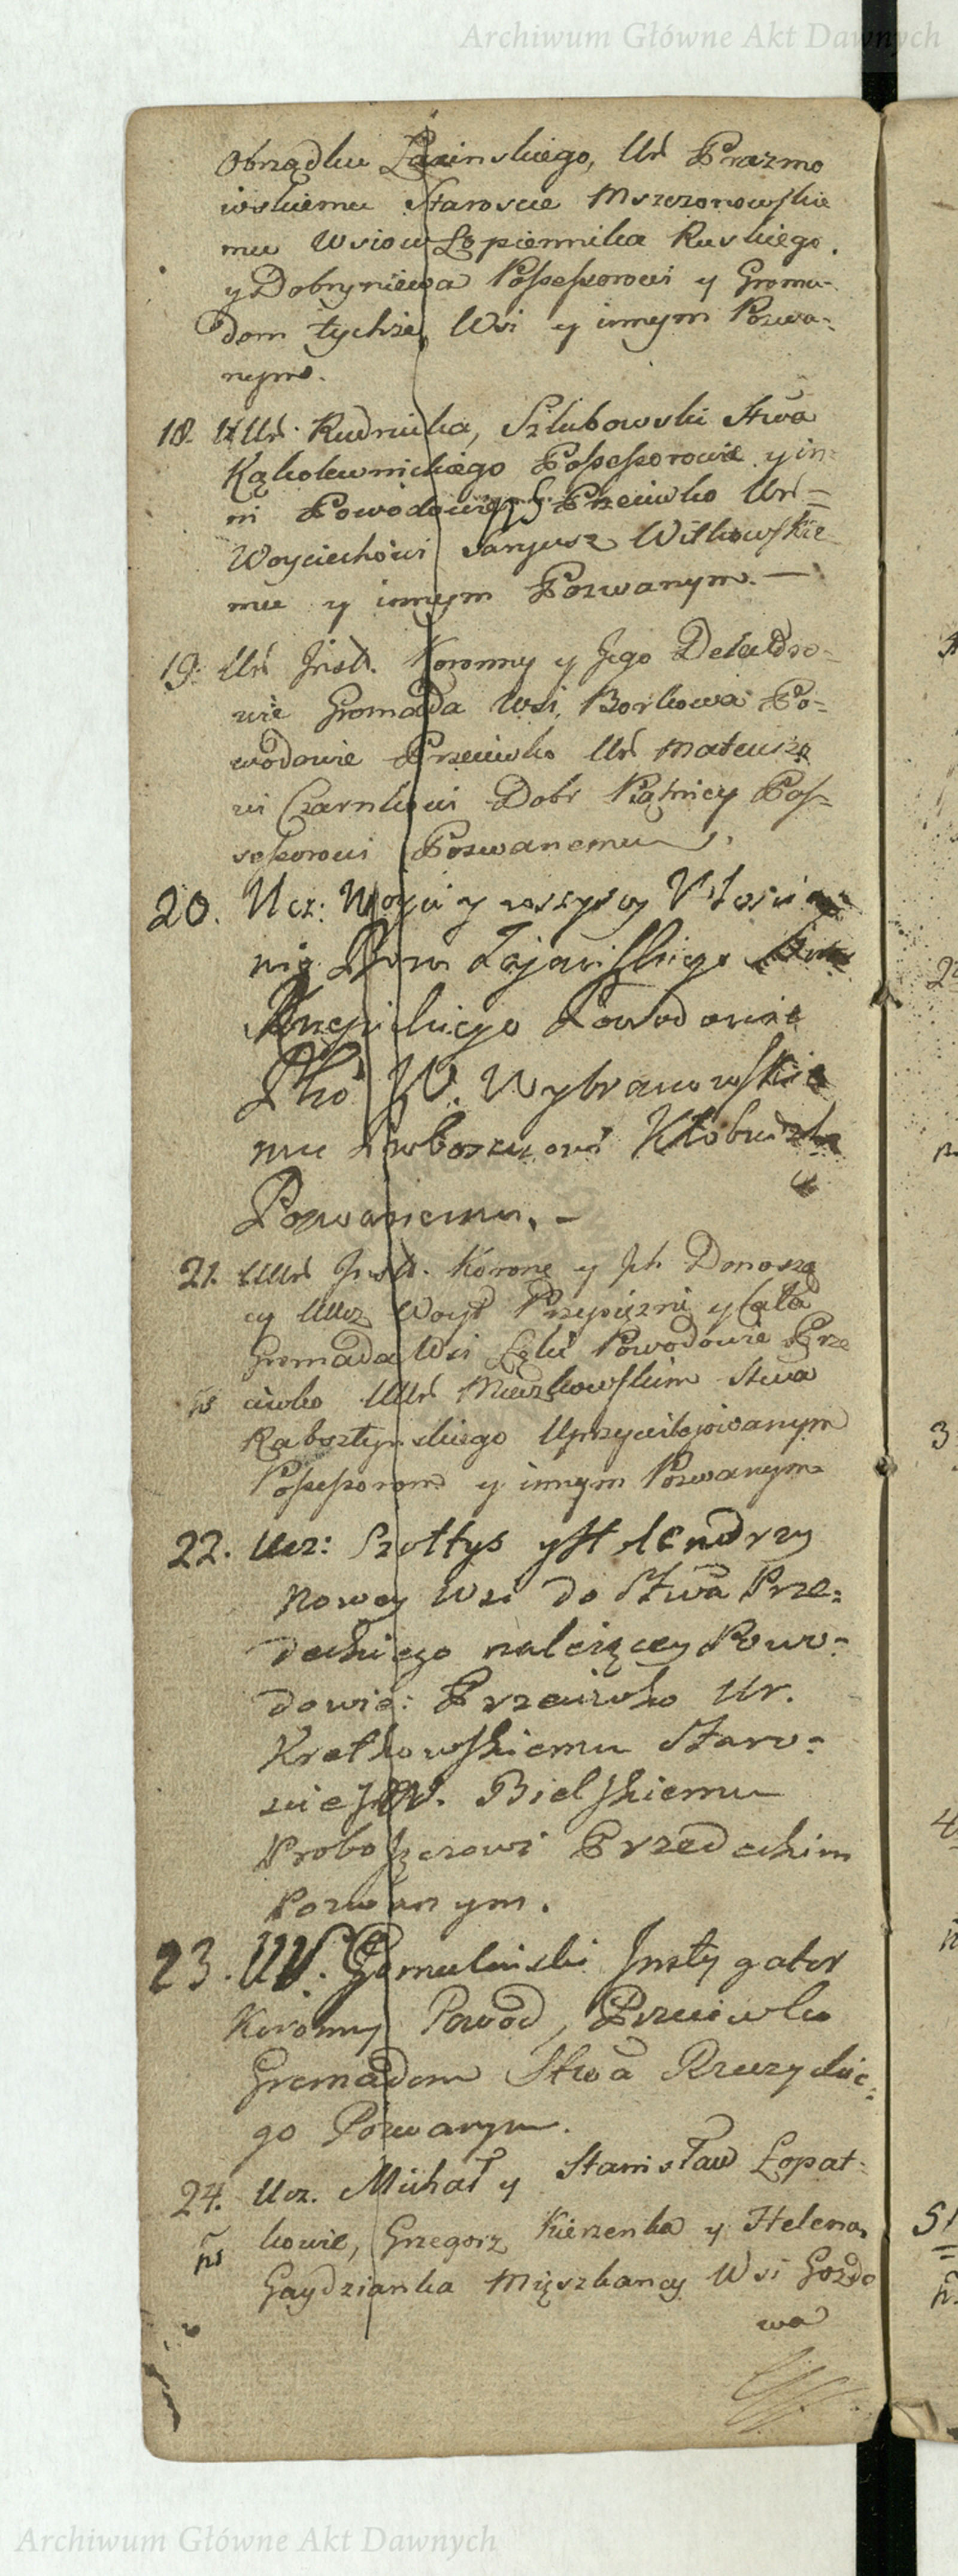 Archiwum Główne Akt Dawnych
Obrządku Łacinskiego, Ur Prazmo
wskiemu Staroscie Mszczonowskie
mu Wsiow Łopiennika Ruskiego
y Dobryniewa Possessorowi y Groma-
dom tychże Wsi y innym Pozwa-
nym.
18. UUr Rudnicka, Szlubowski Stwa
Kąkolewnickiego Possessorowie y in-
ni Powodowie Przeciwko Ur=
Woyciechowi Witkowskie
mu y innym Pozwanym. —
19. Ur Inst. Koronny y Jego Delatoro-
wie Gromada Wsi Borkowa Po-
wodowie Przeciwko Ur Mateuszo
wi Czarnkowi Dobr Kątnicy Pos-
sessorowi Pozwanemu
20. Ucz: Woyci y wszyscy Włoscia
nie Stwa
Krzepickiego Powodowie
Pko W. Wybranowskie
mu Proboszczowi Kłobucko
Pozwanemu. –
21. UUr Inst. Koronne y Ich Donoszą
cy UUcz Woyt Przysiężni y Cała
Gromada Wsi Powodowie Prze
ciwko UUr Mieszkowskim Stwa
Rabsztynskiego Uprzywilejowanym
Possessorom y innym Pozwanym
22. Ucz: Szołtys y Holendrzy
Nowey Wsi do Stwa Prze-
deckiego należącey Powo-
dowie: Przeciwko Ur.
Kretkowskiemu Staro-
scie JW. Bielskiemu
Proboszczowi Przedeckim
Pozwanym.
23. W. Gomulinski Instygator
Koronny Powod, Przeciwko
Gromadom Stwa Rzeczyckie-
go Pozwanym.
24. Ucz. Michał y Stanisław Łopat-
kowie, Grzegorz Kierzenka y Helena
Gaydzianka Mięszkancy Wsi Gozdo
wa
Archiwum Główne Akt Dawnych